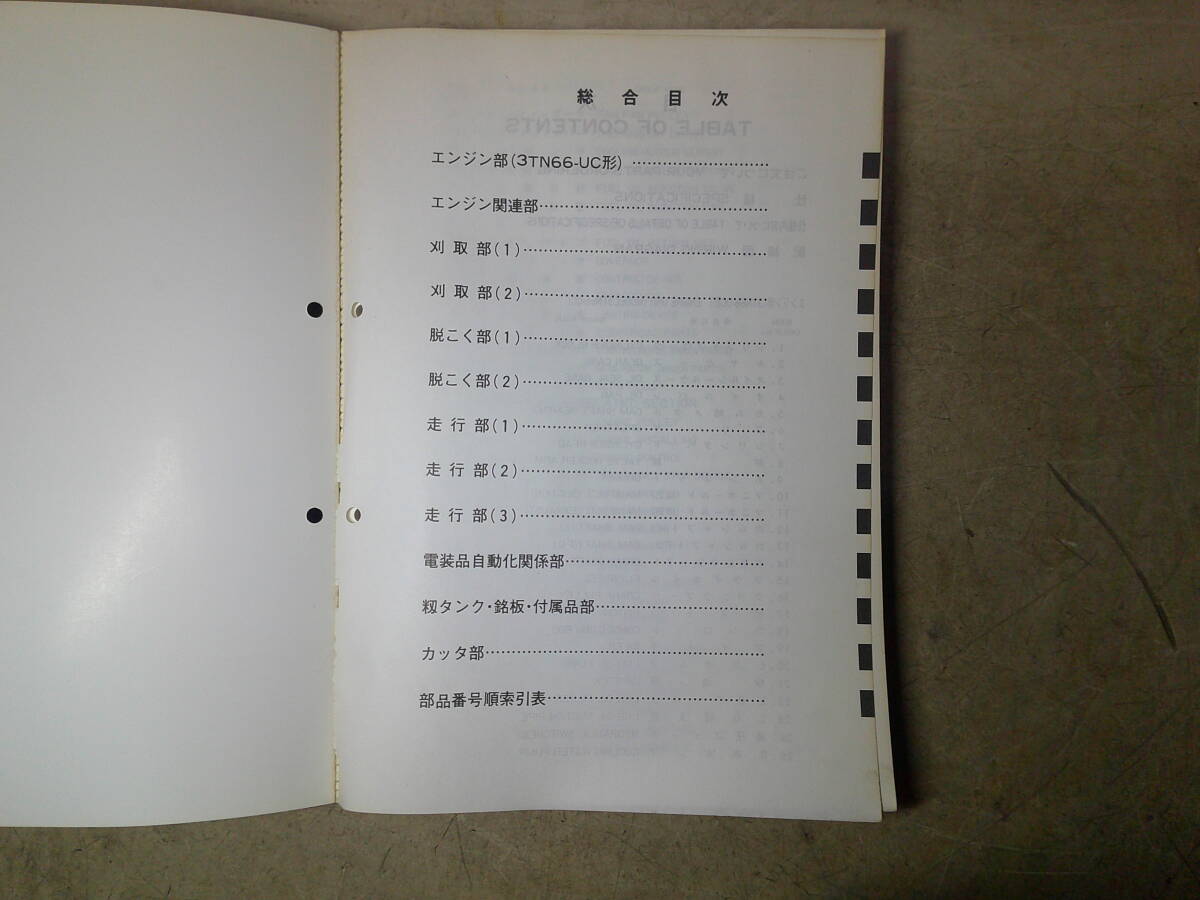 総合目次
エンジン部(3TN66-UC形)
エンジン関連部
刈取部(1)
刈取部(2)
脱こく部(1)
脱こく部(2)
走行部(1)
走行部(2)
走行部(3)
電装品自動化関係部
籾タンク・銘板・付属品部
カッタ部
部品番号順索引表